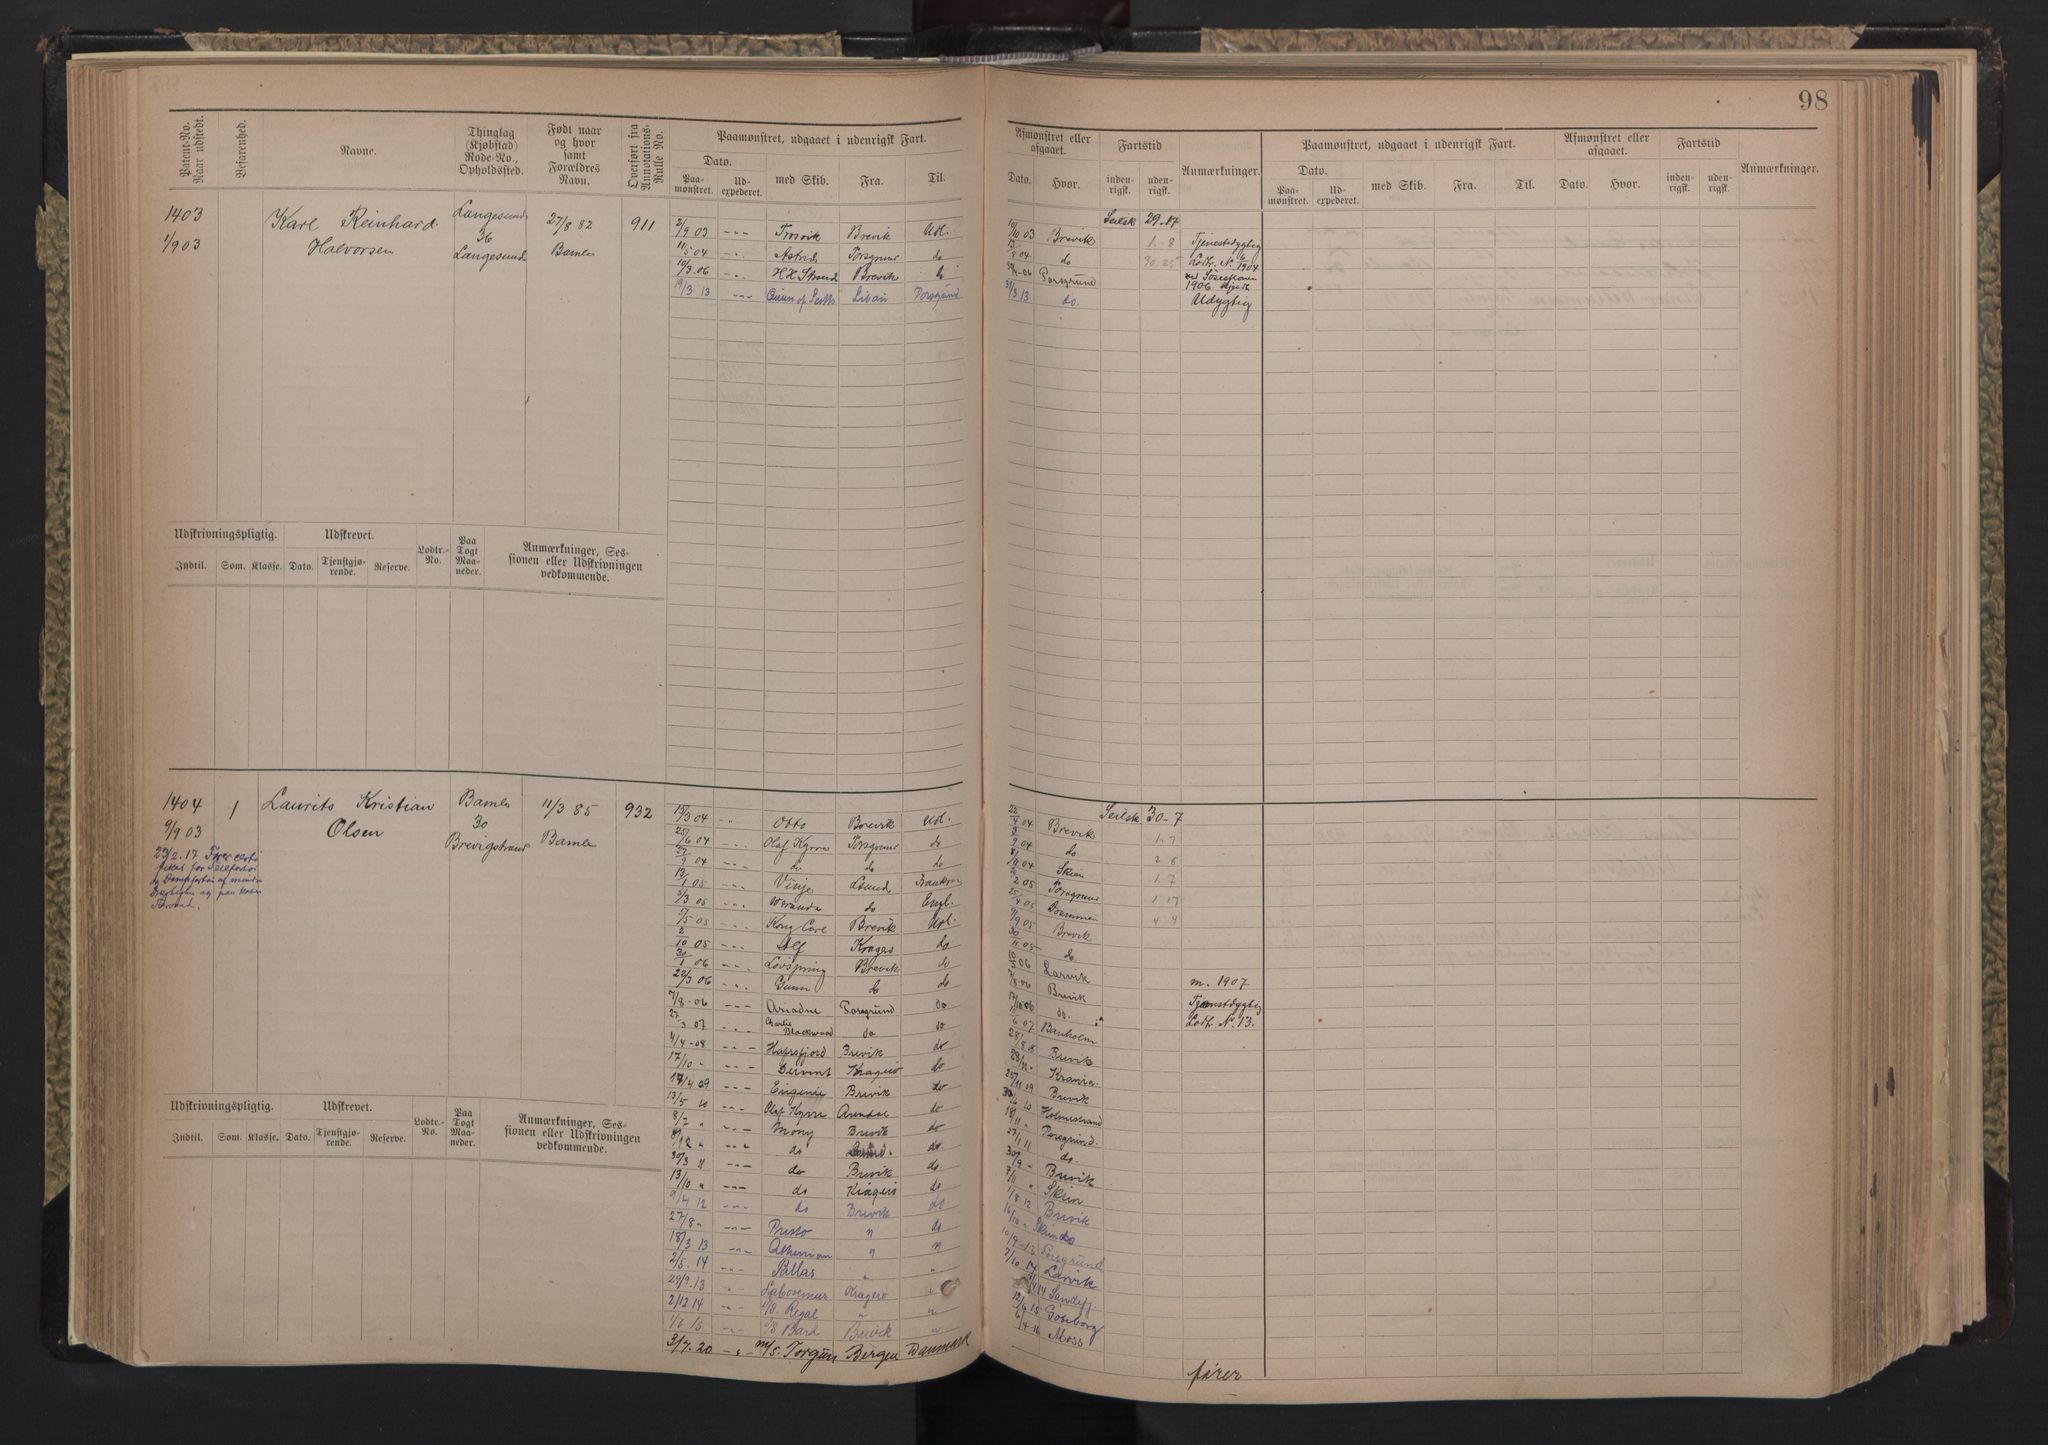 98
Patent-No. Naar udstedt.
Befarenhed.
Navne.
Thinglag (Kjøbstad) Rode-No., Opholdssted.
Født naar og hvor samt Forældres Navn.
Overført fra Annotations-Rulle No.
Paamønstret, udgaaet i udenrigsk Fart.
Dato.
Paamønstret.
Udexpederet.
med Skib.
Fra.
Til.
Afmønstret eller afgaaet.
Dato.
Hvor.
Fartstid
indenrigsk.
udenrigsk.
Anmærkninger.
Paamønstret, udgaaet i udenrigsk Fart.
Dato.
Paamønstret.
Udexpederet.
med Skib.
Fra.
Til.
Afmønstret eller afgaaet.
Dato.
Hvor.
Fartstid
indenrigsk.
udenrigsk.
Anmærkninger.
1403
1/9 03
Karl Reinhard
Halvorsen
Langesund
36
Langesund
27/8 82
Bamle
911
2/9 03 Brevik Udl.
11/5 04 Astrid Porsgrund do
10/3 06 Brevik do
19/3 13 Libau Porsgrund
Seilsk 29-17
10/10 03 Brevik 1-8
do
Porsgrund
31/3 13 do.
Tjenestdygtig
Lodtr. N. 6
1904
1906
Udygtig
Udskrivningspligtig.
Udskrevet.
Lodtr.-No.
Paa Togt Maaneder.
Anmærkninger, Sessionen eller Udskrivningen vedkommende.
Indtil. Som. Klasse. Dato. Tjenstgjørende. Reserve.
1404
9/9 03
1
Laurits Kristian
Olsen
Bamle
30
Brevigstrand
11/3 85
Bamle
932
15/3 04 Otto Brevik Udl.
25/6 04 Olaf Kyrre Porsgrund do
27/9 04 do do do
13/1 05 Vinje
5/3 05 do Engl.
5/5 05 Kong Carl Brevik Udl.
2/10 05 Alf Kragerø do
30/1 06 Lovspring Brevik do
22/3 06 Gunn do do
7/8-06 Ariadne Porsgrund do
27/3 07 Charlie Blackwood do do
4/4-08 Hafrsfjord Brevik do
17/10 - Derwent Kragerø do
17/4 09 Eugenie Brevik do
13/5 10 Olaf Kyrre Arendal do
8/7 " Mony Brevik do
do do.
30/3 11 do Brevik do
13/10 " do Kragerø do
9/4 12 do Brevik do
27/8 " Presto " do
18/3 13 Athenian " "
2/5. 14 Pallas " "
29/9. 13 Kragerø
2/12 14 Regal " "
Bard Brevik "
3/7. 20 m/s. Torgun Bergen Danmark
Seilsk 30-7
22/4 04 Brevik 1.7
do 2 8
Skien 1.7
Porsgrund 1 17
Drammen 4 4
9/9 05 Brevik
30/11 05 do
10/3 06 Larvik
7/8-06 Brevik
17/10 06 do.
6 07 Banholm
28/8 8 Brevik
25/11 09 Brevik
10 Holmestrand
18/11 " Porsgrund.
27/1 11 do.
30/9 " Brevik
7/11 " Skien
1/8 12 Brevik
16/10 "
10/9-13 Porsgrund
2/10 14 Larvik
Sandefj.
12/6 15 Göteborg
6/4-16 Moss
m. 1907
Tjenestdygtig
Lodtr. N. 13.
fører
Udskrivningspligtig.
Udskrevet.
Lodtr.-No.
Paa Togt Maaneder.
Anmærkninger, Sessionen eller Udskrivningen vedkommende.
Indtil. Som. Klasse. Dato. Tjenstgjørende. Reserve.